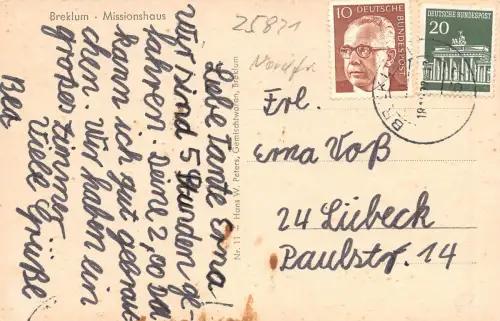 Breklum · Missionshaus
25821
Liebe Tante Erna!
Wir sind 5 Stunden ge-
fahren. Deine 2,00 DM
kann ich gut gebrau-
chen. Wir haben ein
großes Zimmer
Viele Grüße
Nr. 11 – Hans W. Peters, Gemischtwaren, Breklum
10 DEUTSCHE BUNDESPOST
DEUTSCHE BUNDESPOST
20
Frl.
Erna Voß
24 Lübeck
Paulstr. 14